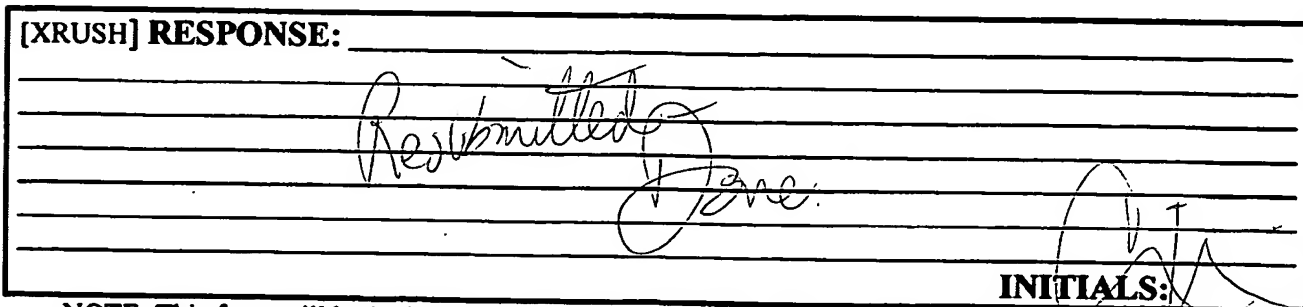 [XRUSH] RESPONSE:
Resubmitted
Done.
INITIALS: